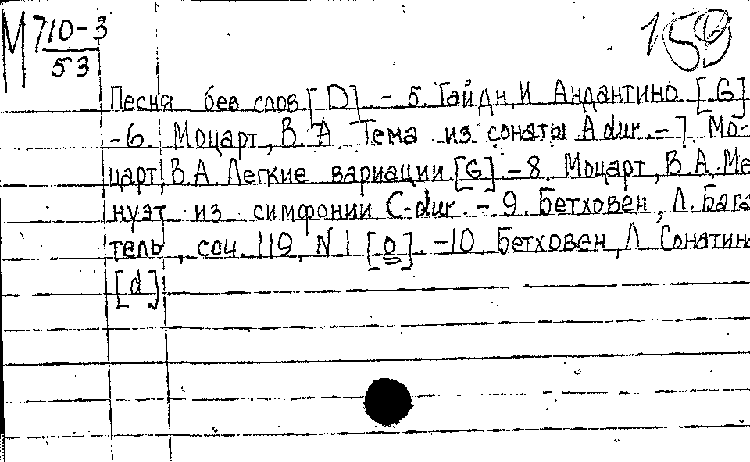 М 710-3
53
159
Песня без слов [D]. - 5. Гайдн, И. Андантино [G]
-6. Моцарт, В.А. Тема из сонаты A dur. - 7. Мо-
царт, В.А. Легкие вариации [G] - 8. Моцарт, В.А. Ме
нуэт из симфонии C-dur. - 9. Бетховен, Л. Бага
тель, соч. 119, N 1 [ ] - 10. Бетховен, Л. Сонатин
[d]